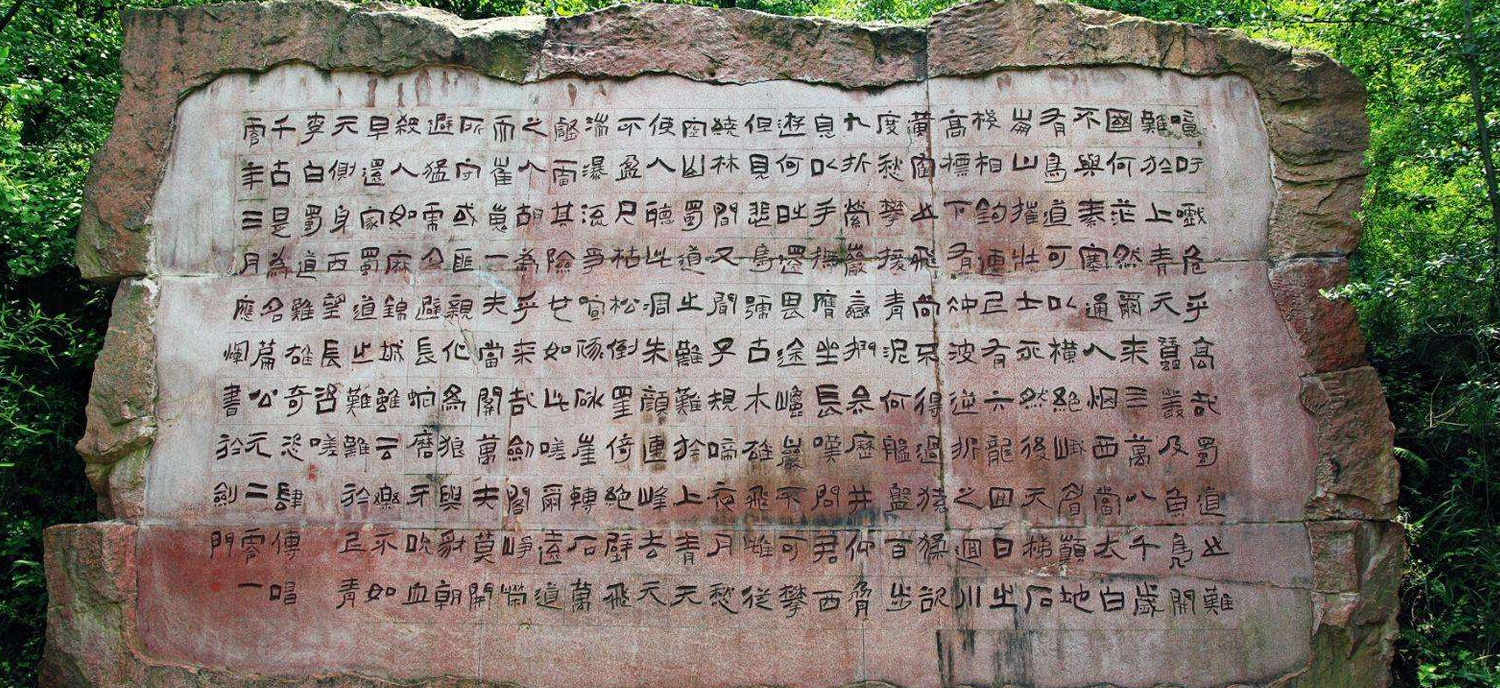 噫吁戲危乎高哉蜀道之難
難於上青天蠶叢及魚鳧開
國何茫然爾來三萬八千歲
不與秦塞通人烟西當太白
有鳥道可以橫絕峨眉巔地
崩山摧壯士死然後天梯石
棧相鉤連上有六龍回日之
高標下有冲波逆折之迴川
黃鶴之飛尚不得過猿猱欲
度愁攀援青泥何盤盤百步
九折縈巖巒捫參歷井仰脅
息以手撫膺坐長嘆問君西
遊何時還畏途巉巖不可攀
但見悲鳥號古木雄飛雌從
繞林間又聞子規啼夜月愁
空山蜀道之難難於上青天
使人聽此凋朱顏連峰去天
不盈尺枯松倒挂倚絕壁飛
湍瀑流爭喧豗砯崖轉石萬
壑雷其險也如此嗟爾遠道
之人胡為乎來哉劍閣崢嶸
而崔嵬一夫當關萬夫莫開
所守或匪親化為狼與豺朝
避猛虎夕避長蛇磨牙吮血
殺人如麻錦城雖云樂不如
早還家蜀道之難難於上青
天側身西望長咨嗟
李白蜀道難雄奇恣肆傳唱
千古是為名篇公元二零一
零年三月應煇書於劍門